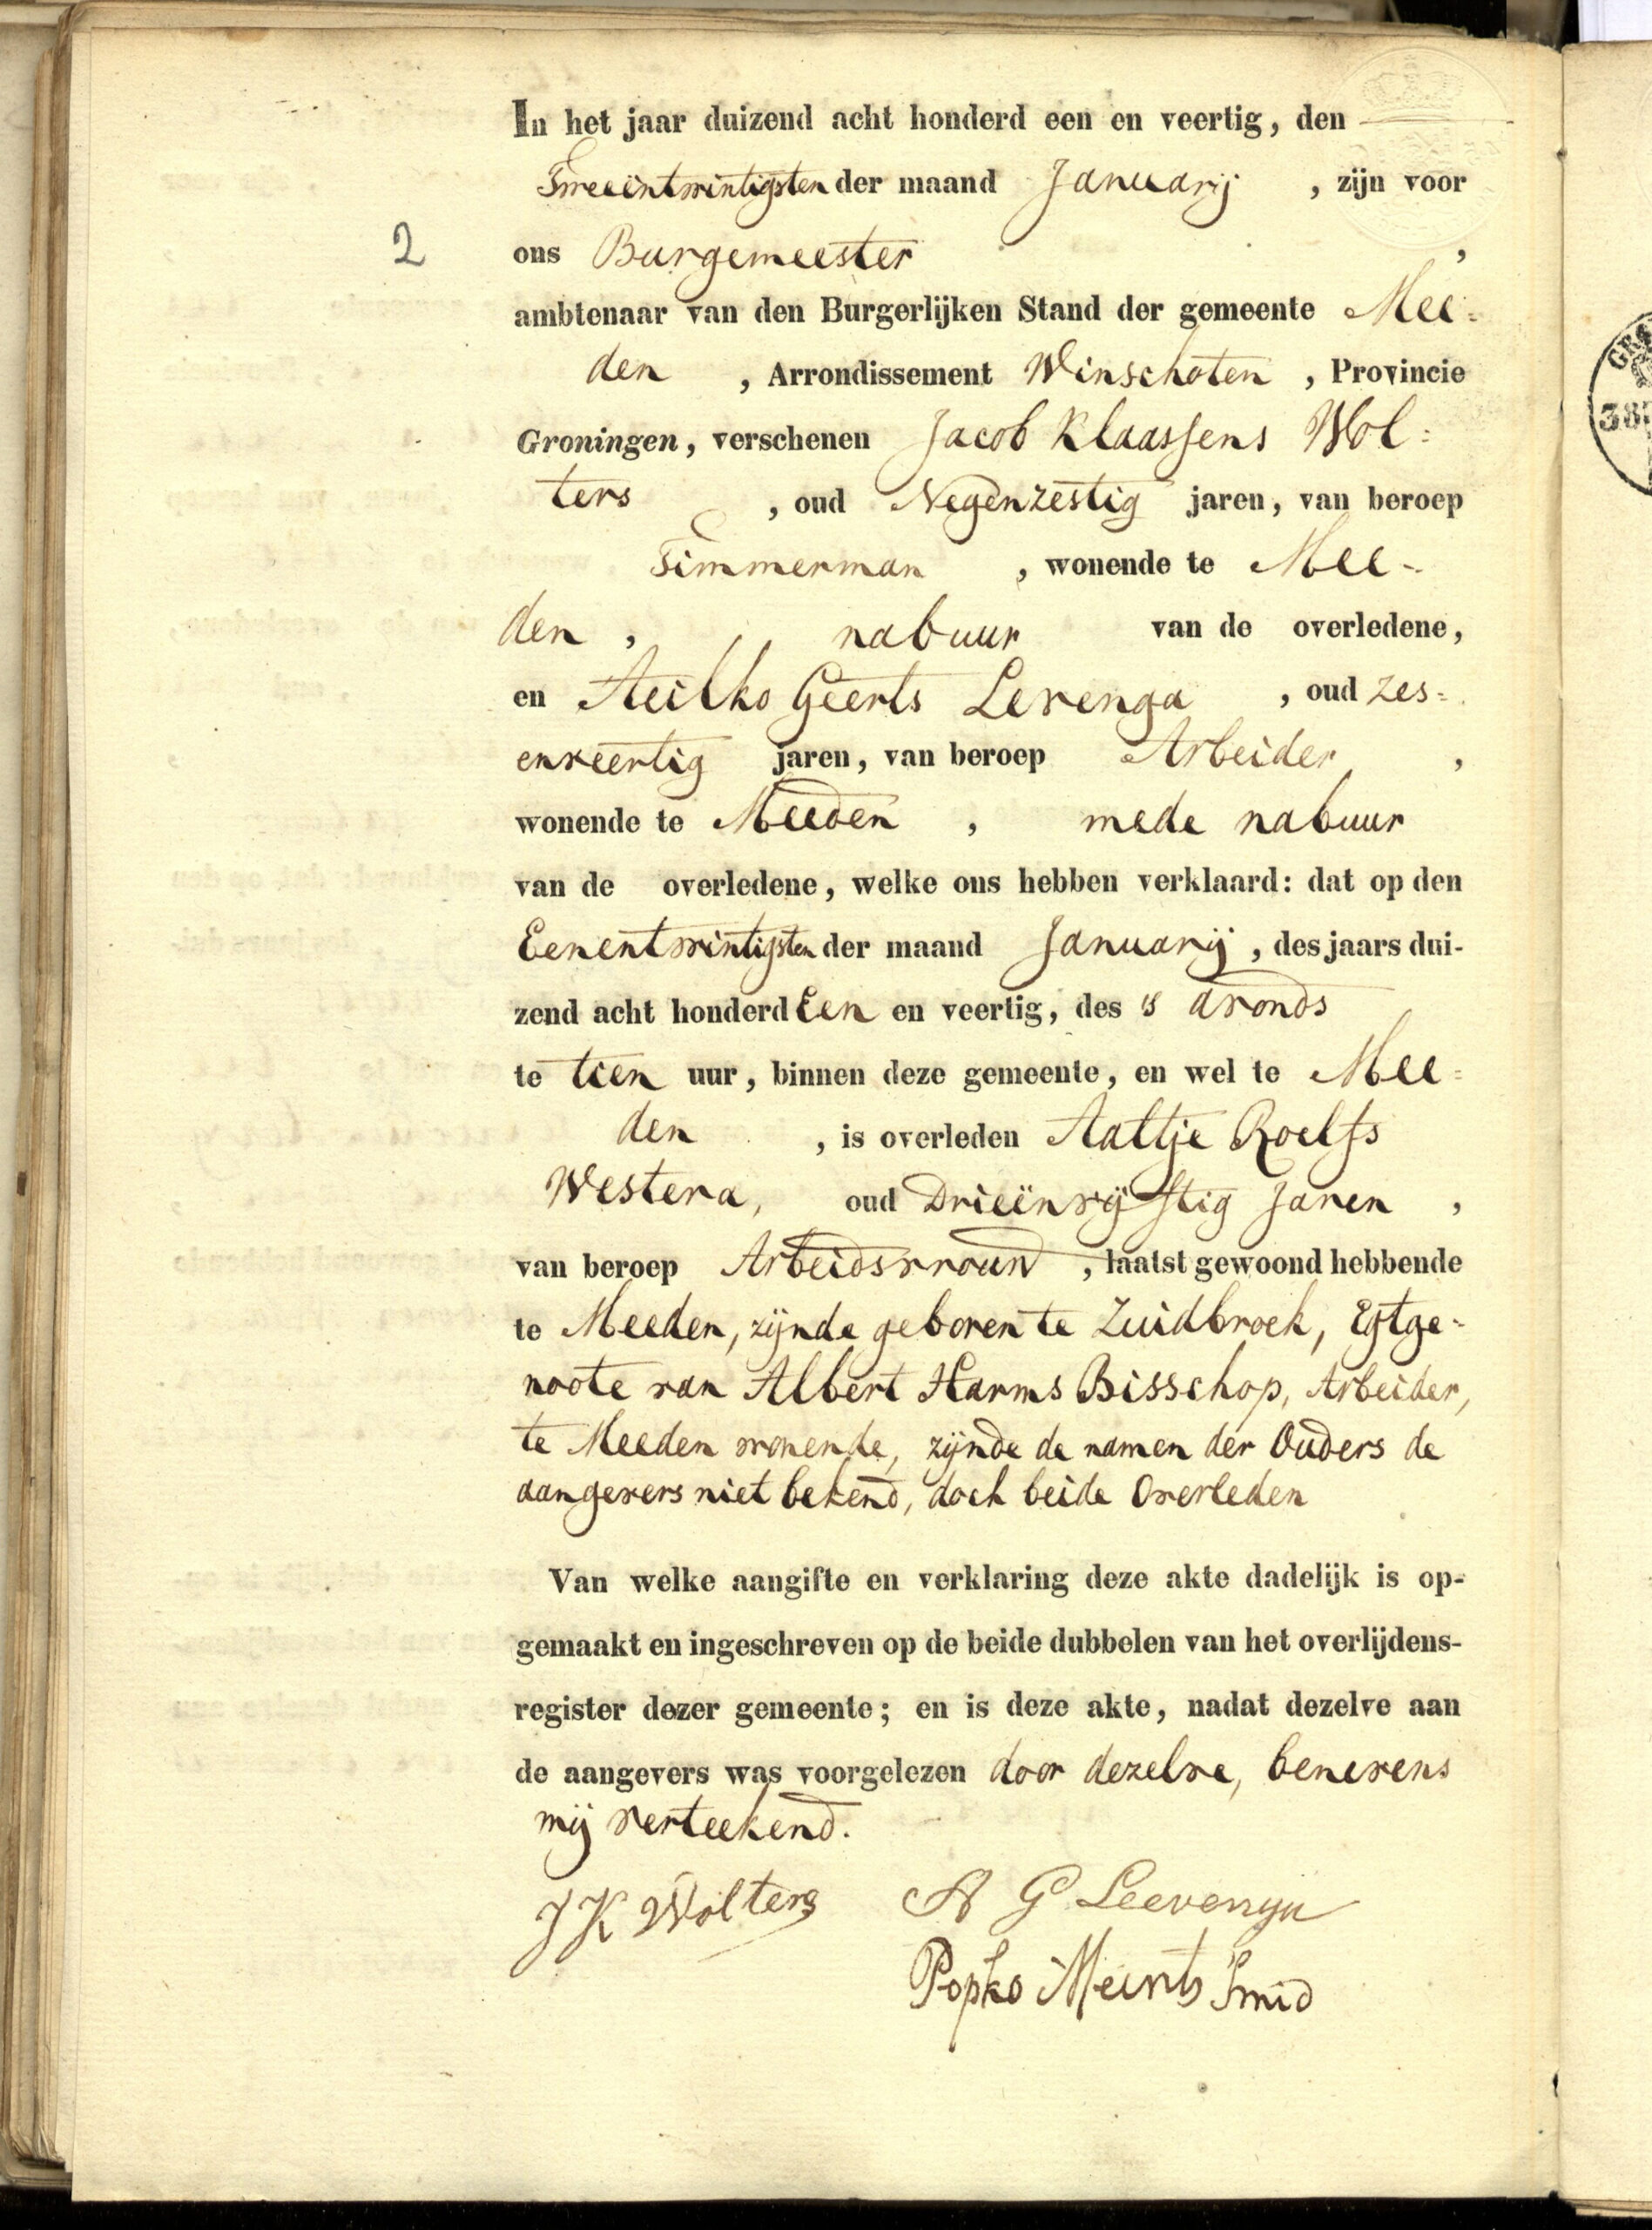 In het jaar duizend acht honderd een en veertig, den
Tweeëntwintigsten der maand Januarij, zijn voor
2
ons Burgemeester,
ambtenaar van den Burgerlijken Stand der gemeente Mee=
den, Arrondissement Winschoten, Provincie
Groningen, verschenen Jacob Klaassens Wol=
ters, oud Negenzestig jaren, van beroep
Timmerman, wonende te Mee=
den, nabuur van de overledene,
en Aeilko Geerts Levenga, oud zes=
enveertig jaren, van beroep Arbeider,
wonende te Meeden, mede nabuur
van de overledene, welke ons hebben verklaard: dat op den
Eenentwintigsten der maand Januarij, des jaars dui-
zend acht honderd Een en veertig, des 's avonds
te tien uur, binnen deze gemeente, en wel te Mee=
den, is overleden Aaltje Roelfs
Westera, oud Drieënvijftig Jaren,
van beroep Arbeidsvrouw, laatst gewoond hebbende
te Meeden, zijnde geboren te Zuidbroek, Egtge=
noote van Albert Harms Bisschop, Arbeider,
te Meeden wonende, zijnde de namen der Ouders de
aangevers niet bekend, doch beide Overleden
Van welke aangifte en verklaring deze akte dadelijk is op-
gemaakt en ingeschreven op de beide dubbelen van het overlijdens-
register dezer gemeente; en is deze akte, nadat dezelve aan
de aangevers was voorgelezen door dezelve, benevens
mij verteekend.
J K Wolters A G Leevenga
Popko Meints Smid